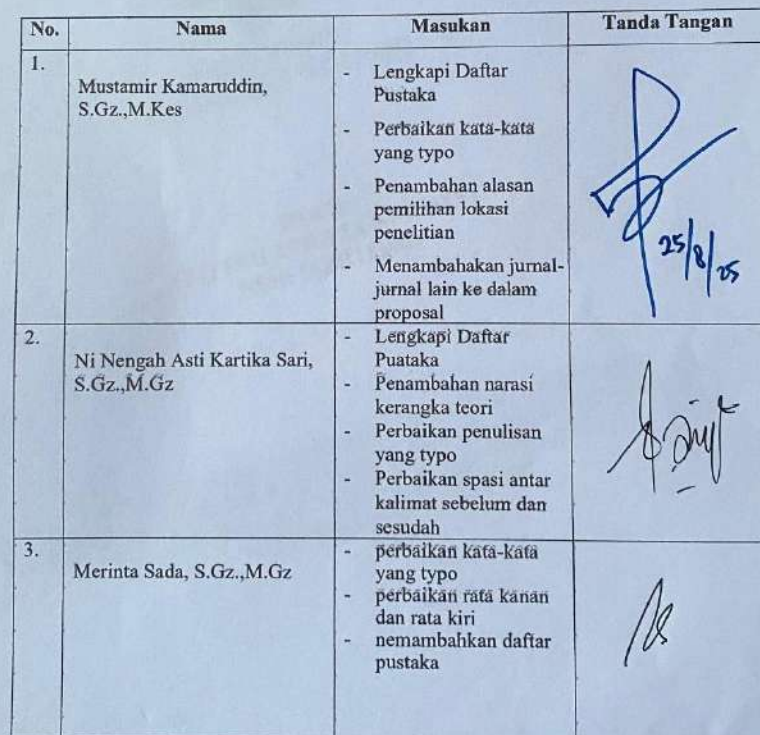 No. Nama Masukan Tanda Tangan
1.
Mustamir Kamaruddin,
S.Gz.,M.Kes
- Lengkapi Daftar
Pustaka
- Perbaikan kata-kata
yang typo
- Penambahan alasan
pemilihan lokasi
penelitian
- Menambahakan jurnal-
jurnal lain ke dalam
proposal
25/8/25
2.
Ni Nengah Asti Kartika Sari,
S.Gz.,M.Gz
- Lengkapi Daftar
Puataka
- Penambahan narasi
kerangka teori
- Perbaikan penulisan
yang typo
- Perbaikan spasi antar
kalimat sebelum dan
sesudah
3.
Merinta Sada, S.Gz.,M.Gz
- perbaikan kata-kata
yang typo
- perbaikan rata kanan
dan rata kiri
- nemambahkan daftar
pustaka